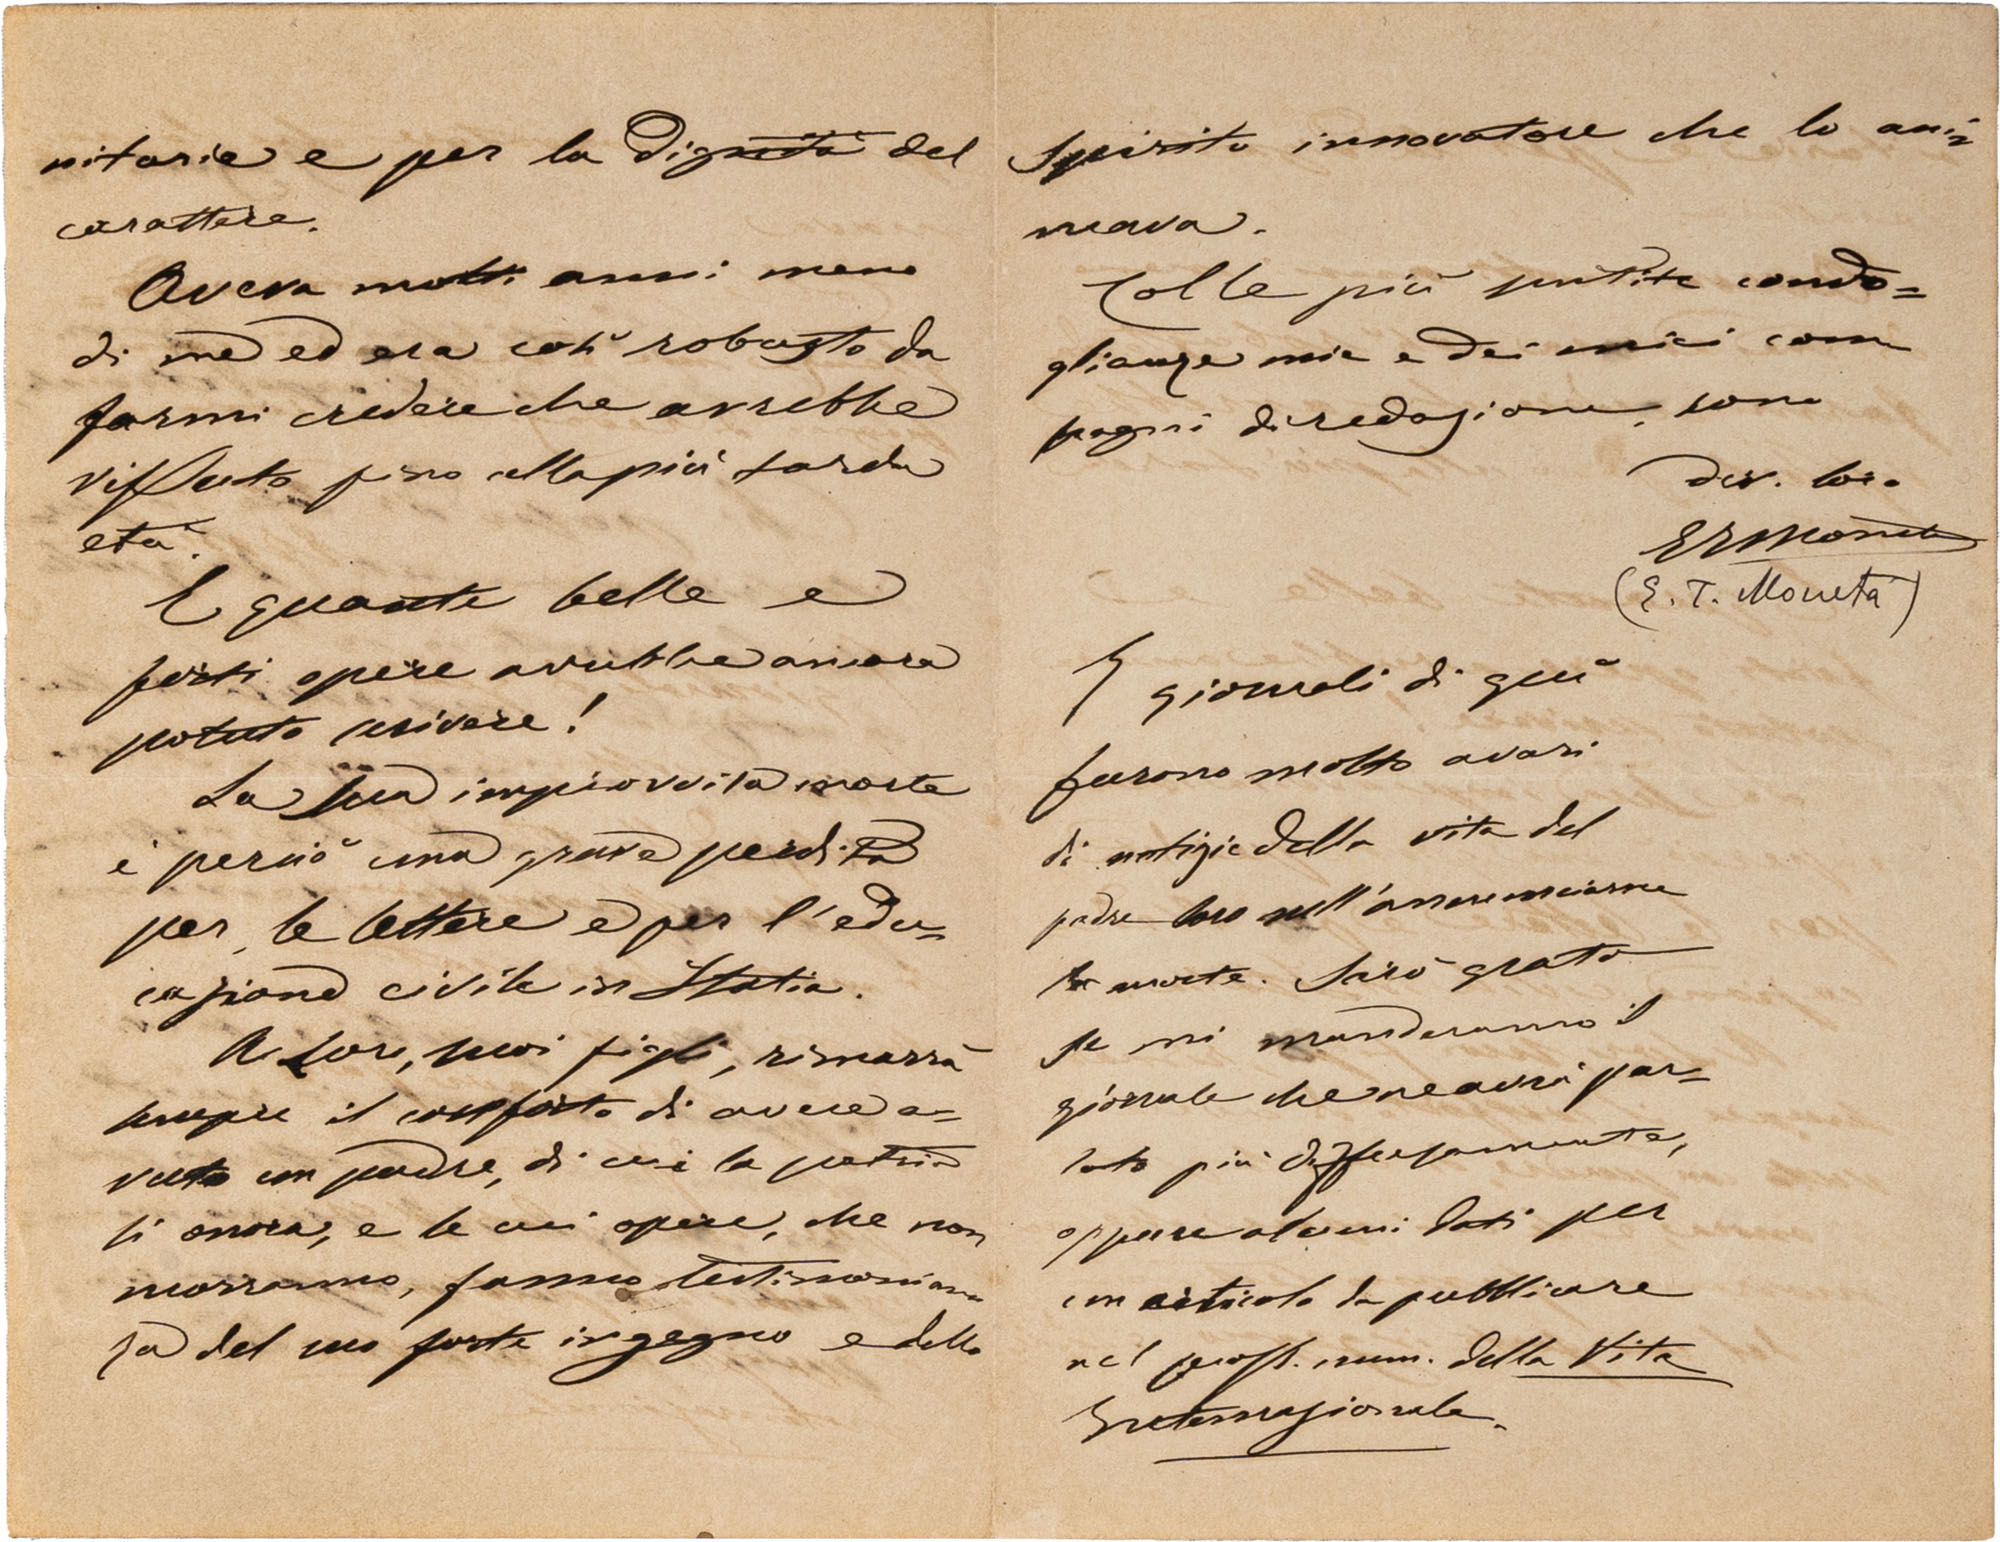 nitarie e per la dignità del
carattere.
Aveva molti anni meno
di me ed era così robusto da
farmi credere che avrebbe
vissuto fino alla più tarda
età.
E quante belle e
forti opere avrebbe ancora
potuto scrivere!
La sua improvvisa morte
è perciò una grave perdita
per le lettere e per l'edu=
cazione civile in Italia.
A Loro, suoi figli, rimarrà
sempre il conforto di avere a=
vuto un padre, di cui la patria
si onora, e le cui opere, che non
morranno, fanno testimonian
za del suo forte ingegno e dello
spirito innovatore che lo ani=
mava.
Colle più sentite condo=
glianze mie e dei miei com
pagni di redazione, sono
dev. loro
E T Moneta
(E. T. Moneta)
I giornali di qui
furono molto avari
di notizie della vita del
padre loro nell'annunciarne
la morte. Sarò grato
se mi manderanno il
giornale che ne avrà par=
lato più diffusamente,
oppure alcuni dati per
un articolo da pubblicare
nel pross. num. della Vita
Internazionale.